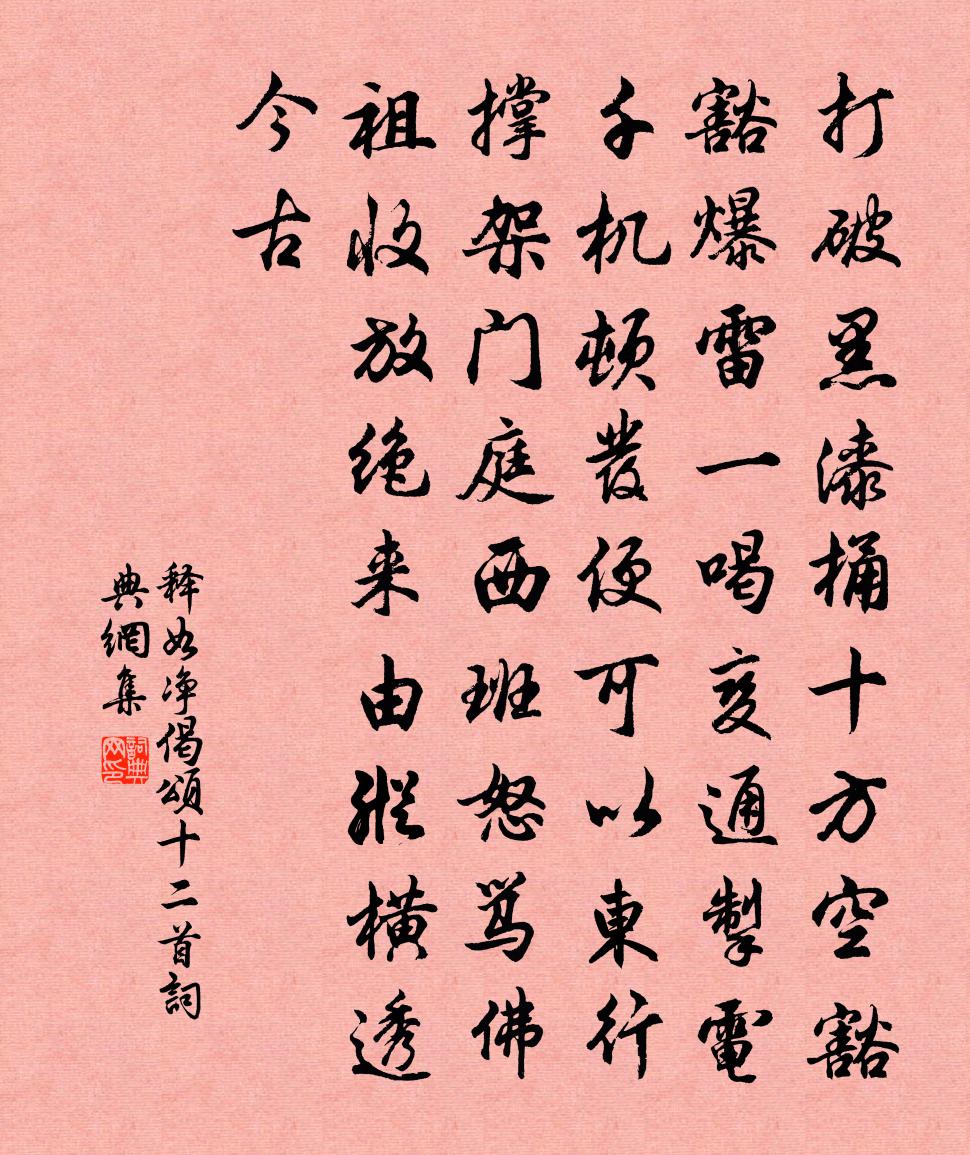 打破黑漆桶十方空豁
豁爆雷一喝变通掣電
千机頓發便可以東行
撑架门庭西班怒骂佛
祖收放绝来由縱橫透
今古
释如净偈頌十二首詞
典網集
詞典网印